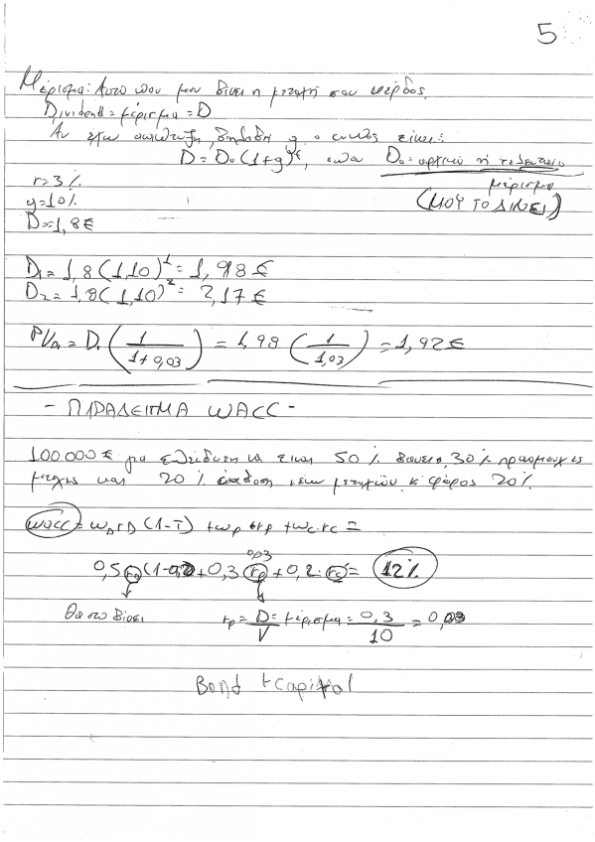 5
Μέρισμα: Αυτό που μου δίνει η μετοχή σαν κέρδος.
Dividend = μέρισμα = D
Αν έχω ανάπτυξη, δηλαδή g ο τύπος είναι:
D = D₀ (1+g)ᵗ, όπου D₀ = αρχικό ή τελευταίο
μέρισμα
(ΜΟΥ ΤΟ ΔΙΝΕΙ)
r=3%
g=10%
D=1,8€
D₁ = 1,8 (1,10)¹ = 1,98€
D₂ = 1,8 (1,10)² = 2,17€
= D₁ (1/1+0,03) = 1,98 (1/1,03) = 1,92€
- ΠΑΡΑΔΕΙΓΜΑ WACC -
100.000€ για επένδυση να είναι 50% δάνεια, 30% προνομιούχες
μετοχές και 20% έκδοση νέων μετοχών κ φόρος 20%.
WACC = w_D r_D (1-T) + w_p r_p + w_c r_c =
0,03
0,5 r_D (1-0,2) + 0,3 r_p + 0,2 · r_c = 12%
Θα το δίνει
r_p = D/V = μέρισμα = 0,3/10 = 0,03
Bond + Capital